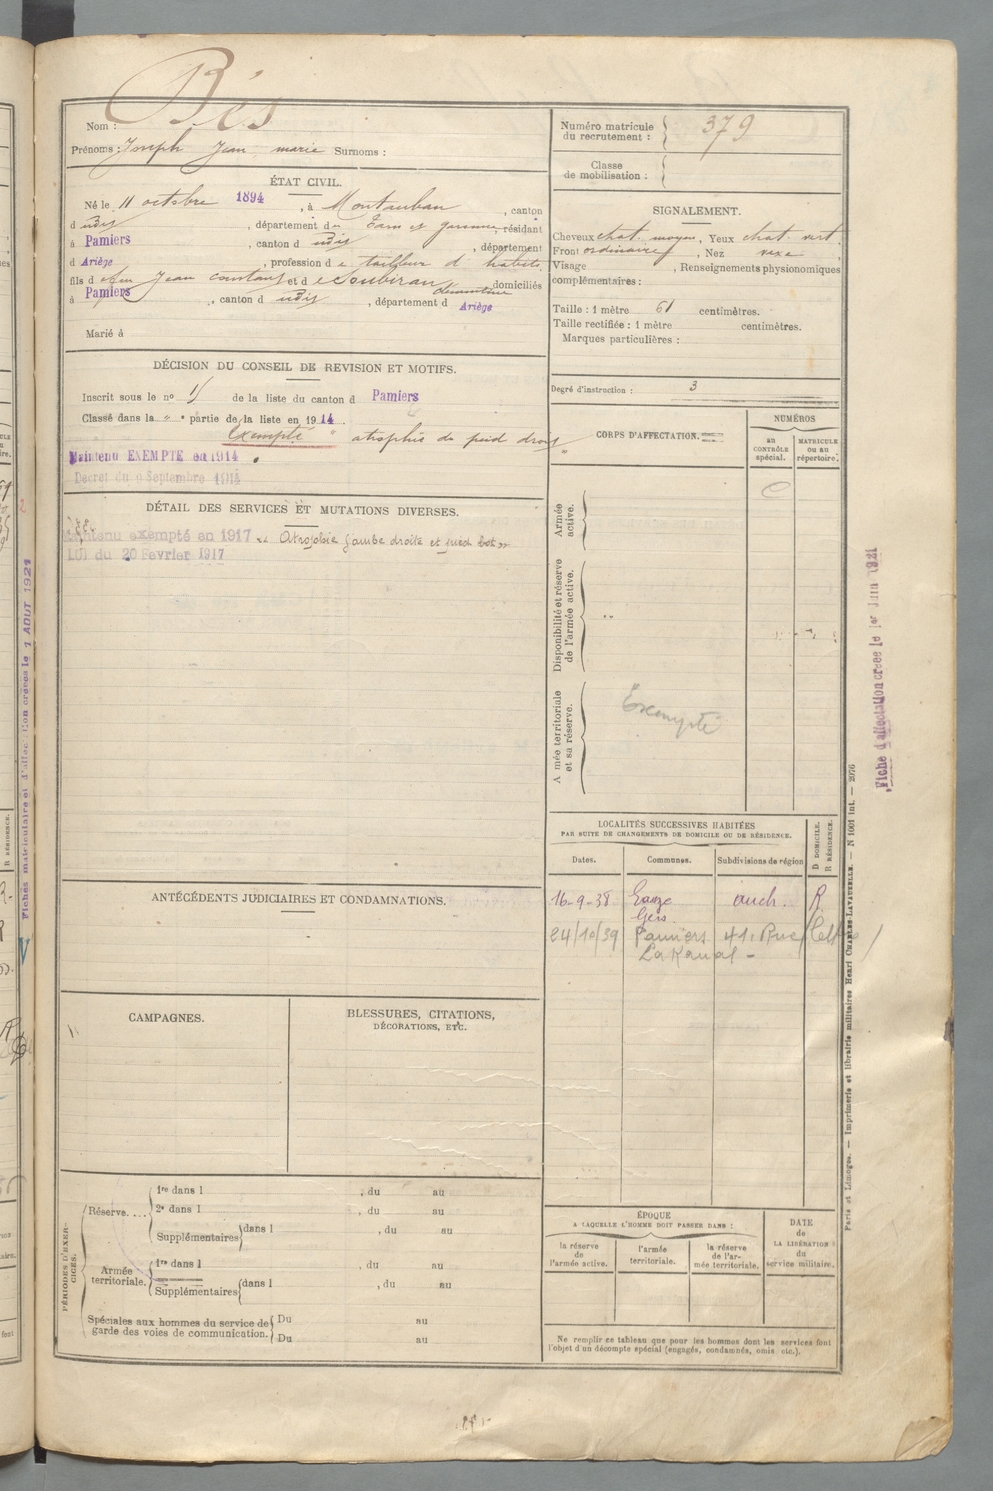 Bés
Nom :
Prénoms : Joseph Jean marie Surnoms :
Numéro matricule du recrutement : 379
Classe de mobilisation :
ÉTAT CIVIL.
Né le 11 octobre 1894, à Montauban, canton
d udit, département du Tarn et garonne, résidant
à Pamiers, canton d udit, département
d Ariège, profession d e tailleur d'habits
fils d e feu Jean constant et d e Soubiran domiciliés
à Pamiers, canton d udit, département d Ariège
Marié à
SIGNALEMENT.
Cheveux chat. moyen, Yeux chat. vert,
Front ordinaire, Nez vexe,
Visage , Renseignements physionomiques
complémentaires :
Taille : 1 mètre 61 centimètres.
Taille rectifiée : 1 mètre centimètres.
Marques particulières :
Degré d'instruction : 3
DÉCISION DU CONSEIL DE REVISION ET MOTIFS.
Inscrit sous le nº de la liste du canton d Pamiers
Classé dans la " partie de la liste en 1914
Exempté atrophie du pied droit
Maintenu EXEMPTE en 1914
Décret du 9 Septembre 1914
DÉTAIL DES SERVICES ET MUTATIONS DIVERSES.
Maintenu exempté en 1917 " Atrophie jambe droite et pied bot "
LOI du 20 Fevrier 1917
CORPS D'AFFECTATION.
NUMÉROS
au CONTRÔLE spécial.
MATRICULE ou au répertoire.
Armée active.
Disponibilité et réserve de l'armée active.
Armée territoriale et sa réserve.
Exempté
LOCALITÉS SUCCESSIVES HABITÉES
PAR SUITE DE CHANGEMENTS DE DOMICILE OU DE RÉSIDENCE.
Dates. Communes. Subdivisions de région
D DOMICILE. R RÉSIDENCE.
16-9-38 Eauze auch. R
Gers
24/10/39 Pamiers 41, Rue
ANTÉCÉDENTS JUDICIAIRES ET CONDAMNATIONS.
CAMPAGNES.
BLESSURES, CITATIONS,
DÉCORATIONS, ETC.
PÉRIODES D'EXERCICES.
Réserve....
1re dans l , du au
2e dans l , du au
Supplémentaires dans l , du au
Armée territoriale.
1re dans l , du au
Supplémentaires dans l , du au
Spéciales aux hommes du service de garde des voies de communication.
Du au
Du au
ÉPOQUE
A LAQUELLE L'HOMME DOIT PASSER DANS :
la réserve de l'armée active.
l'armée territoriale.
la réserve de l'armée territoriale.
DATE de LA LIBÉRATION du service militaire.
Ne remplir ce tableau que pour les hommes dont les services font
l'objet d'un décompte spécial (engagés, condamnés, omis etc.).
Paris et Limoges. — Imprimerie et librairie militaires Henri CHARLES-LAVAUZELLE. — N 1001 int. — 2076
Fiche d'affectation créée le 1er Juin 1921
Fiches matriculaire et d'affectation créées le 1 AOUT 1921